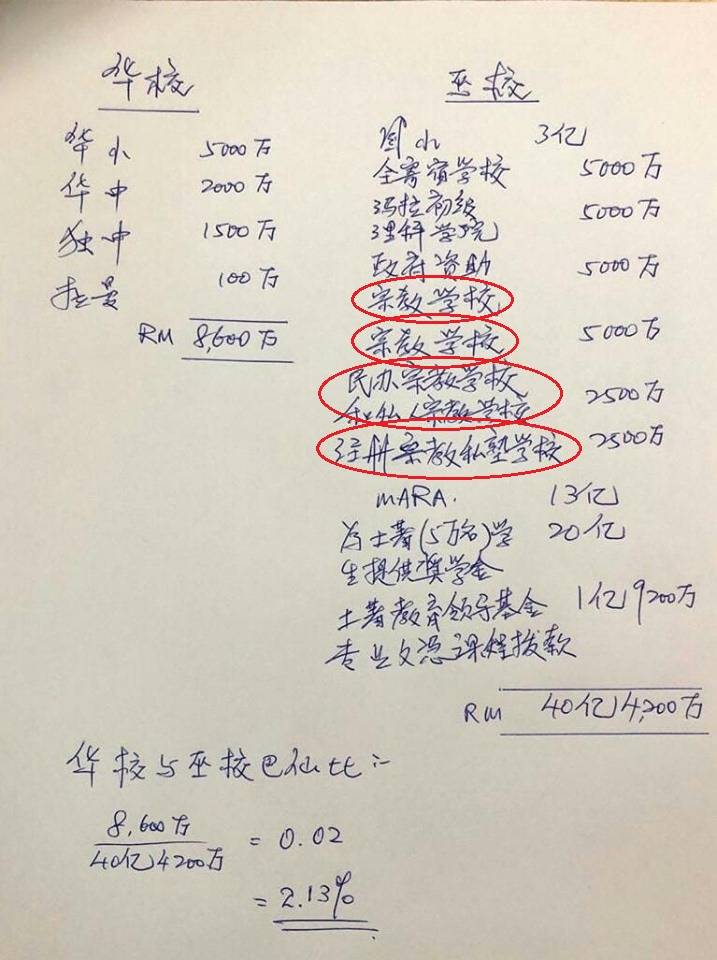 华校
华小 5000万
华中 2000万
独中 1500万
拉曼 100万
RM 8,600万
巫校
国小 3亿
全寄宿学校 5000万
玛拉初级 5000万
理科学院
政府资助 5000万
宗教学校
宗教学校 5000万
民办宗教学校 2500万
和私人宗教学校
注册宗教私塾学校 2500万
MARA. 13亿
为土著(5万名)学 20亿
生提供奖学金
土著教育领导基金 1亿9200万
专业文凭课程拨款
RM 40亿4,200万
华校与巫校巴仙比:-
8,600万
40亿4200万
= 0.02
= 2.13%